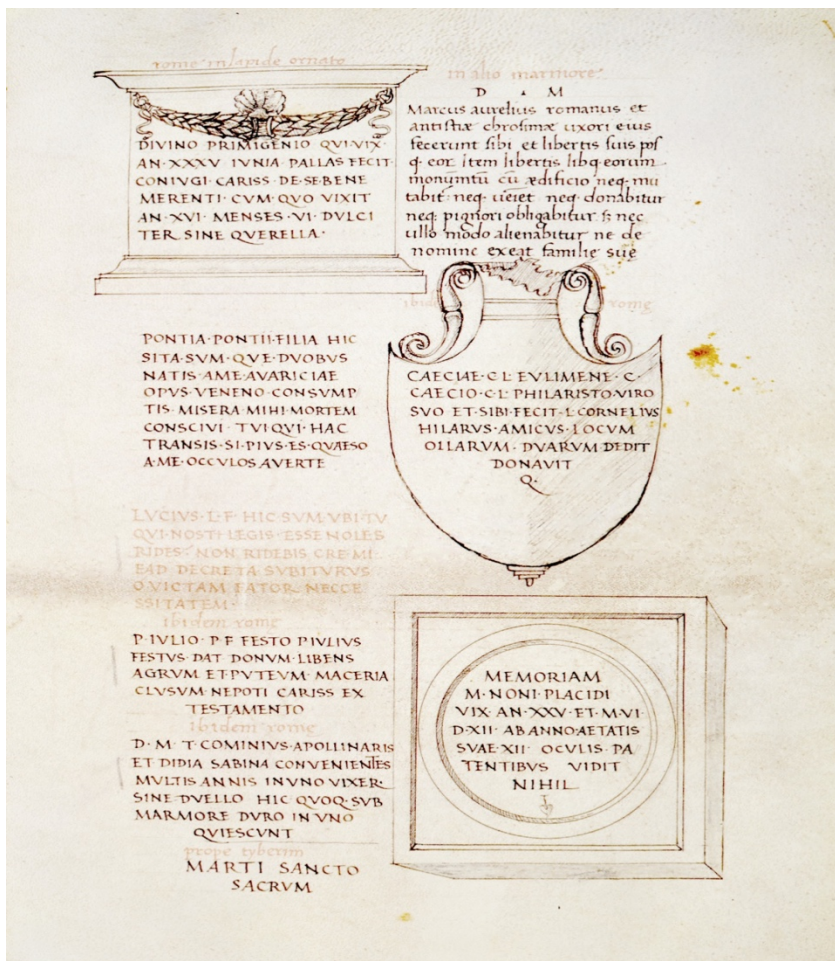 rome in lapide ornato
DIVINO PRIMIGENIO QVI·VIX·
AN·XXXV IVNIA·PALLAS FECIT·
CONIVGI CARISS·DE·SE·BENE
MERENTI·CVM·QVO VIXIT
AN·XVI·MENSES·VI·DVLCI
TER SINE QVERELLA·
in alio marmore
D · M
Marcus aurelius romanus et
antistiæ chrosimæ uxori eius
fecerunt sibi et libertis suis pos
q· eor item libertis libq· eorum
monumtū cū ædificio neq· mu
tabit neq· ueiet neq· donabitur
neq· pignori obligabitur s; nec
ullo modo alienabitur ne de
nomine exeat familie sue
PONTIA·PONTII·FILIA HIC
SITA·SVM·QVE·DVOBVS
NATIS·A·ME·AVARICIAE
OPVS·VENENO·CONSVMP
TIS·MISERA·MIHI·MORTEM
CONSCIVI·TV·QVI·HAC
TRANSIS·SI·PIVS·ES·QVAESO
A·ME·OCCVLOS AVERTE
ibidē rome
CAECIAE·C·L·EVLIMENE·C·
CAECIO·C·L·PHILARISTO·VIRO
SVO ET·SIBI·FECIT·L·CORNELIVS
HILARVS·AMICVS·LOCVM
OLLARVM·DVARVM DEDIT
DONAVIT
Q·
LVCIVS·L·F·HIC·SVM·VBI·TV
QVI·NOSTI·LEGIS·ESSE NOLES
RIDES·NON RIDEBIS CRE MI
EAD DECRETA SVBITVRVS
O VICTAM FATOR·NECCE
SSITATEM·
ibidem rome
P·IVLIO·P·F FESTO PIVLIVS
FESTVS DAT DONVM·LIBENS
AGRVM ET·PVTEVM·MACERIA
CLVSVM·NEPOTI CARISS EX
TESTAMENTO
ibidem rome
D·M·T·COMINIVS·APOLLINARIS
ET DIDIA SABINA CONVENIENTES
MVLTIS ANNIS IN VNO VIXER·
SINE DVELLO HIC QVOQ·SVB
MARMORE DVRO IN VNO
QVIESCVNT
prope tyberim
MARTI SANCTO
SACRVM
MEMORIAM
M·NONI·PLACIDI
VIX·AN·XXV·ET·M·VI·
D·XII·AB ANNO·AETATIS
SVAE·XII·OCVLIS·PA
TENTIBVS VIDIT
NIHIL